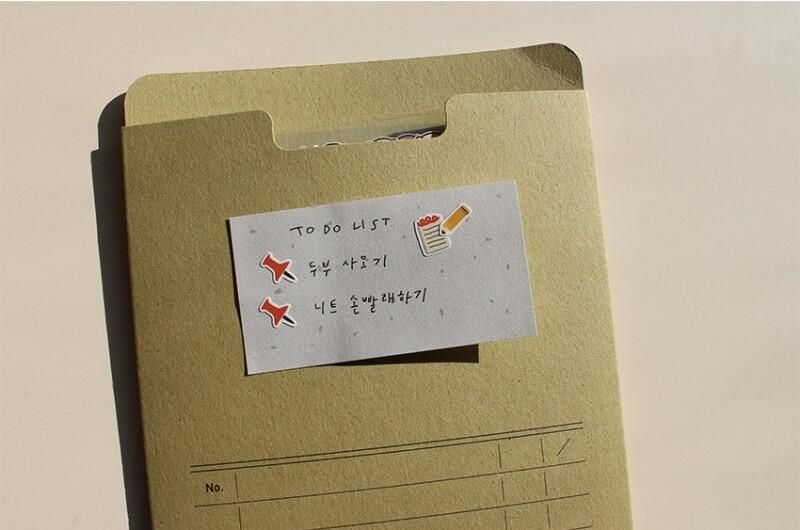 TO DO LIST
두부 사오기
니트 손빨래하기
No.